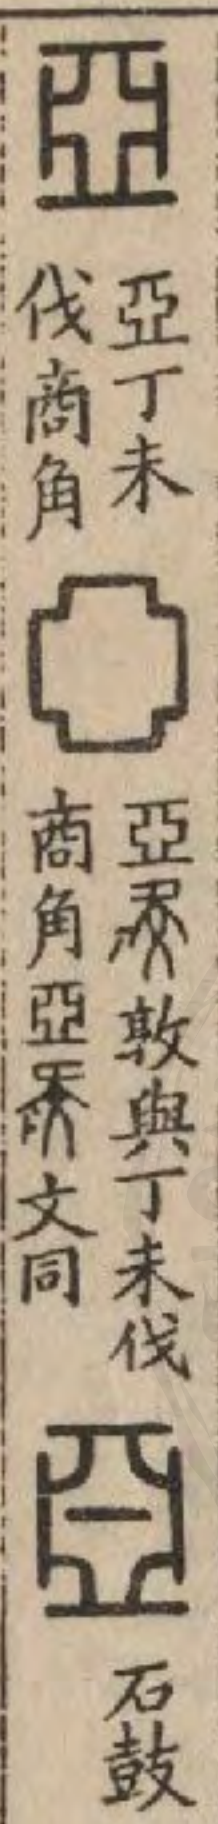 亞
亞丁未
伐商角
亞
亞敦與丁未伐
商角亞文同
石鼓